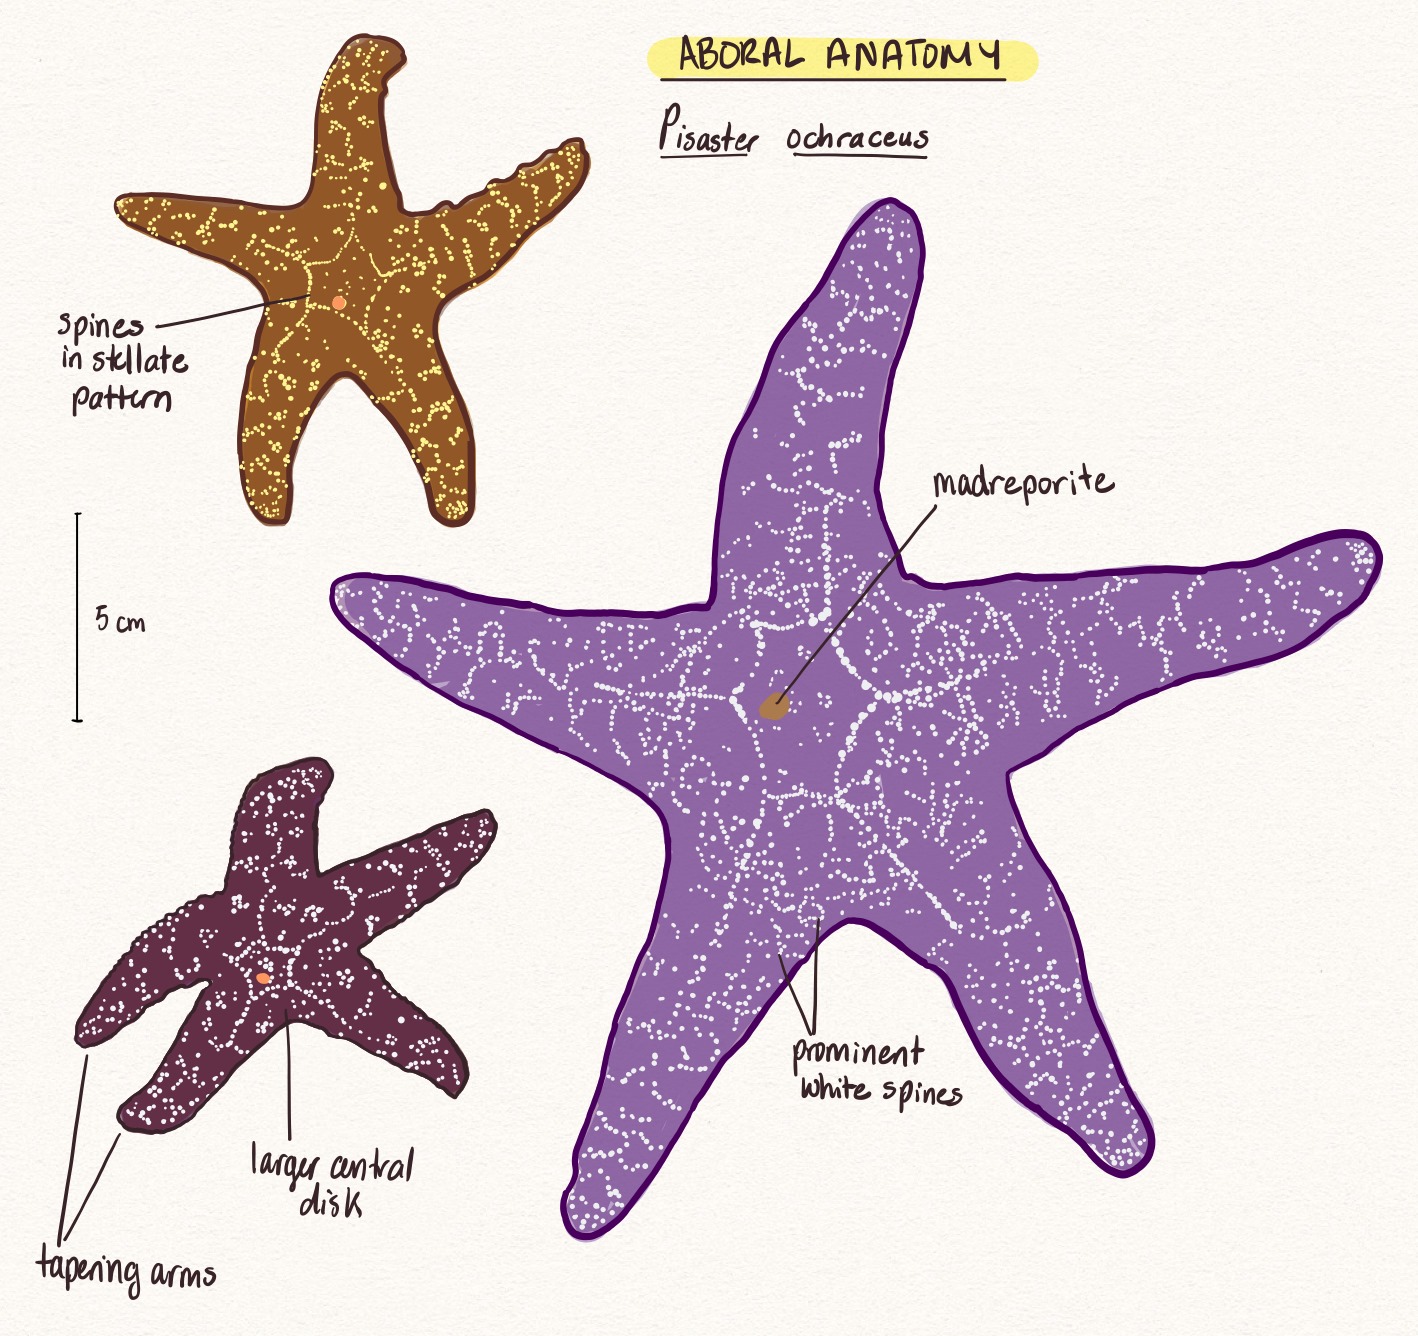 ABORAL ANATOMY
Pisaster ochraceus
spines
in stellate
pattern
madreporite
5 cm
prominent
white spines
larger central
disk
tapering arms